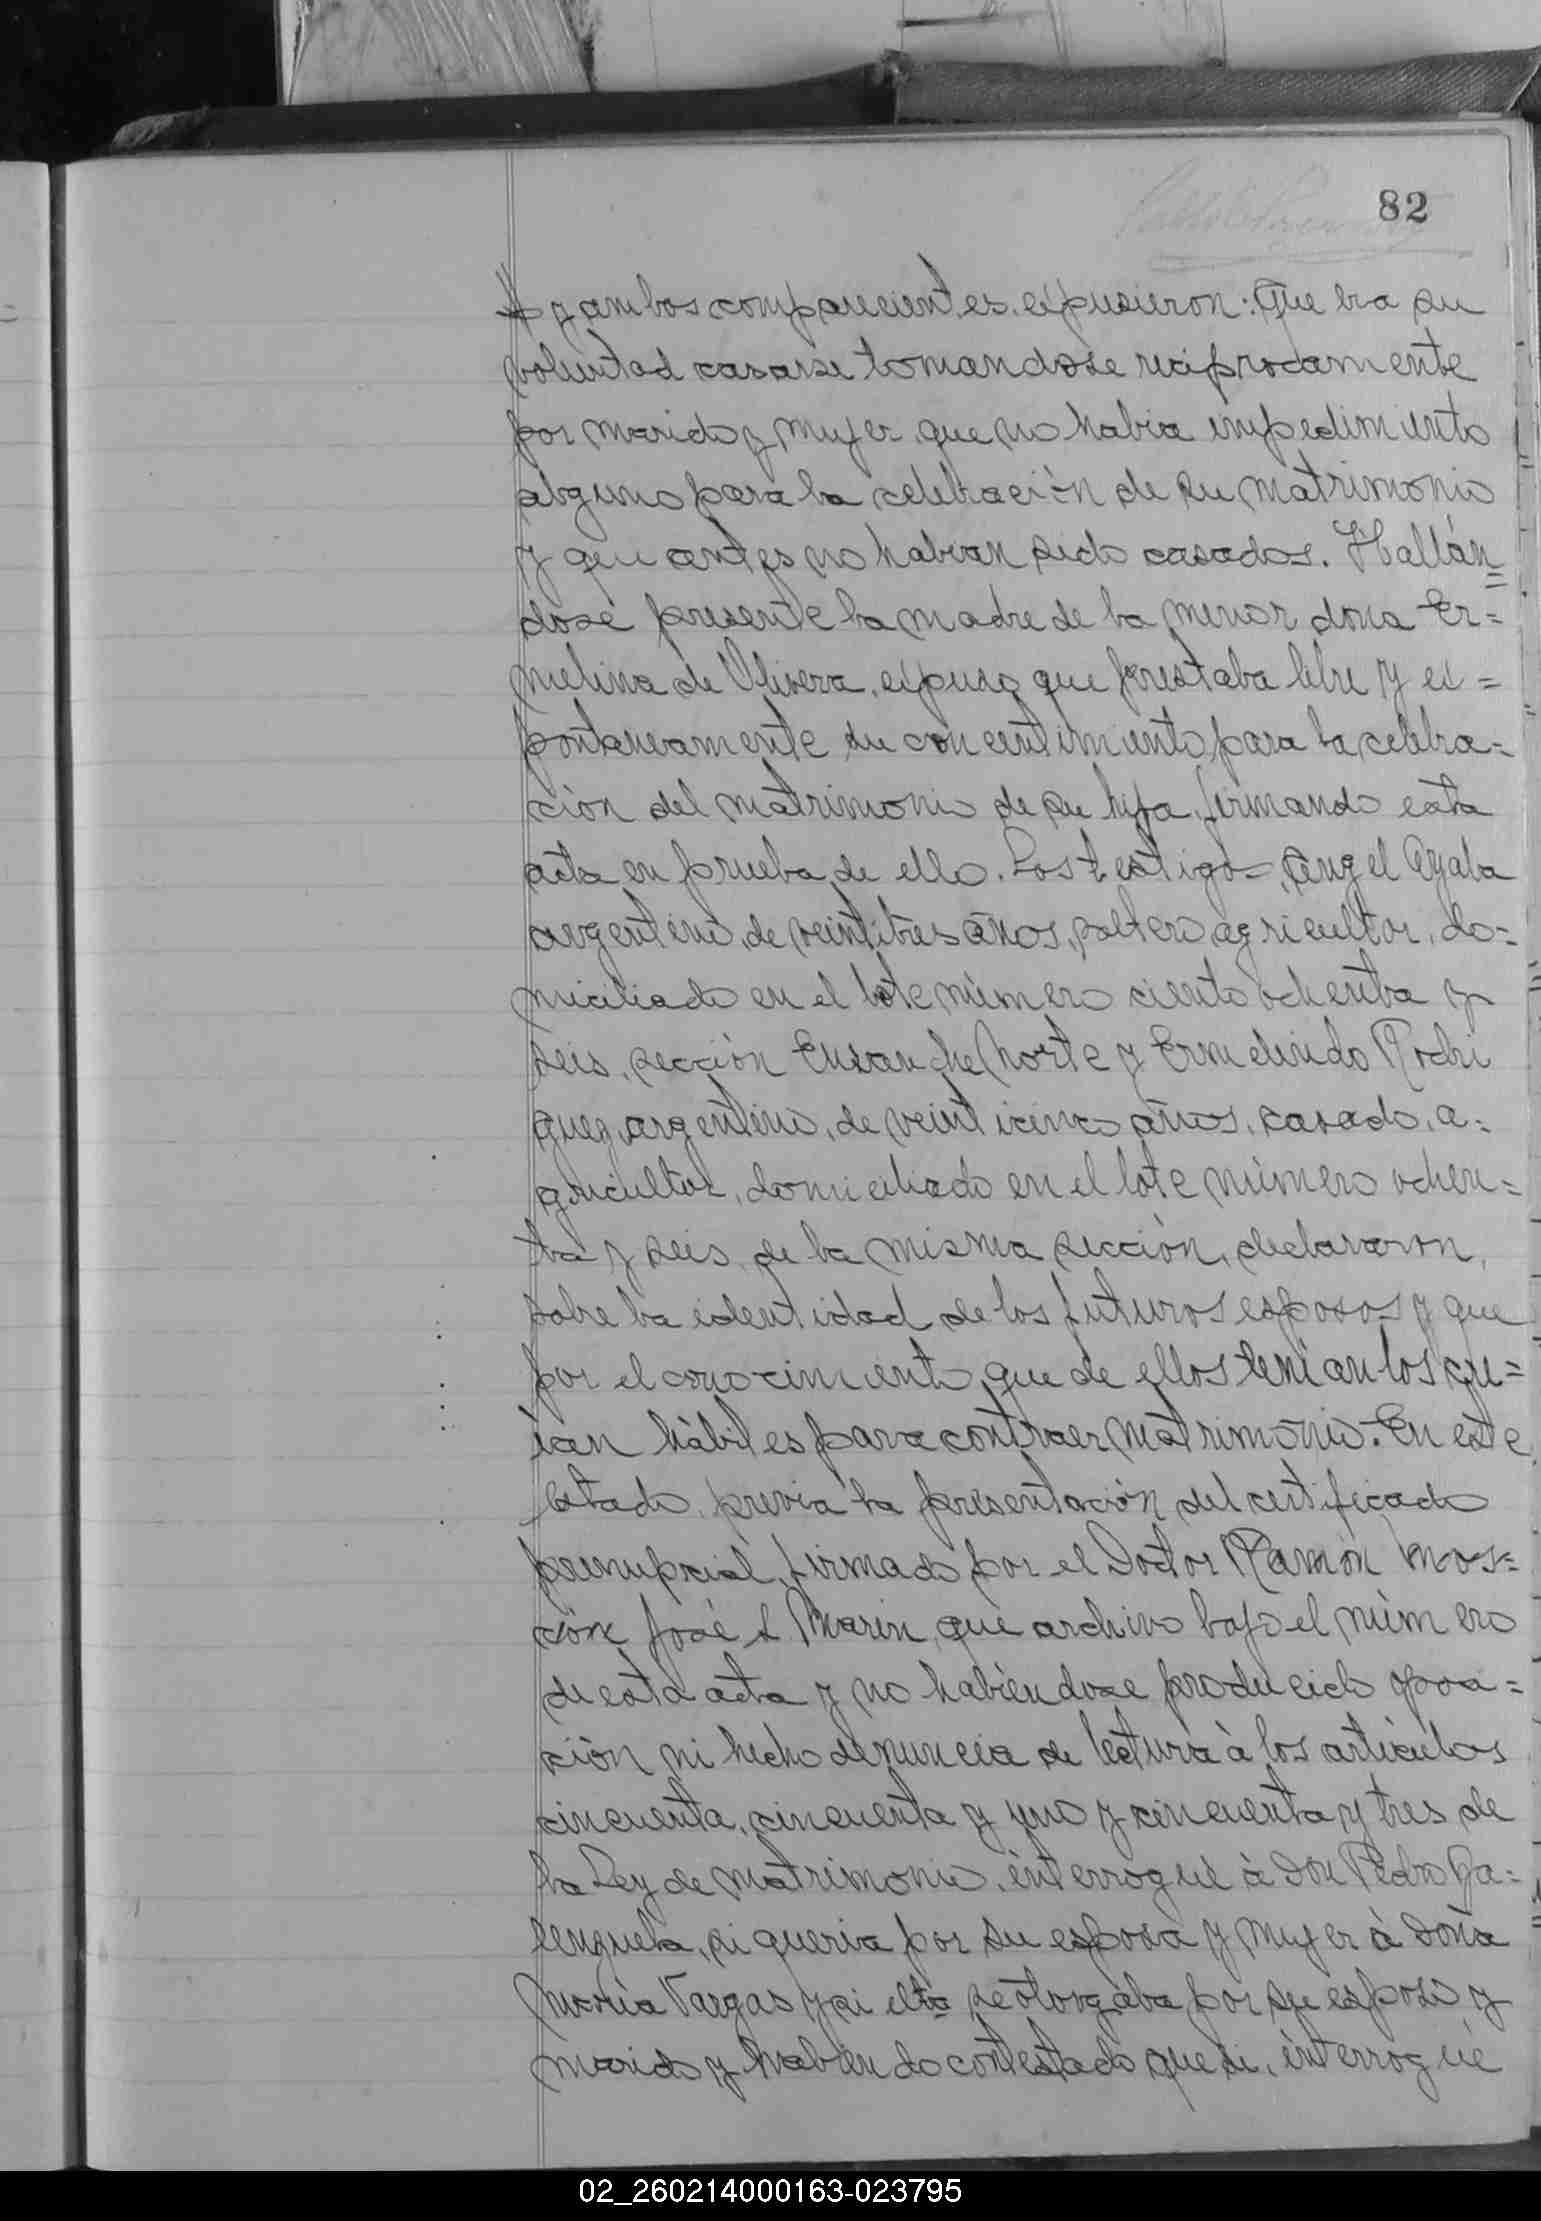 82
y ambos comparecientes expusieron: Que era su
voluntad casarse tomandose reciprocamente
por marido y mujer, que no habia impedimiento
alguno para la celebración de su matrimonio
y que antes no habian sido casados. Hallán=
dose presente la madre de la menor doña Er=
melina de Olivera, expuso que prestaba libre y es=
pontaneamente su concentimiento para la celebra=
ción del matrimonio de su hija, firmando esta
acta en prueba de ello. Los testigos, Angel Ayala
argentino, de veintitres años, soltero, agricultor, do=
miciliado en el lote número ciento ochenta y
seis, sección Ensanche Norte y Ermelindo Rodri
guez, argentino, de veinticinco años, casado, a=
gricultor, domiciliado en el lote número ochen=
ta y seis, de la misma sección, declararon,
sobre la identidad de los futuros esposos y que
por el conocimiento que de ellos tenian los cre=
ian hábiles para contraer matrimonio. En este
estado, previa la presentación del certificado
prenupcial, firmado por el Doctor Ramón
José L. Marin, que archivo bajo el número
de esta acta y no habiéndose producido oposi=
ción ni hecho denuncia di lectura à los articulos
cincuenta, cincuenta y uno y cincuenta y tres de
la Ley de matrimonio, interrogué à don Pedro Ga=
lenzuela, si queria por su esposa y mujer à doña
Maria Vargas y si esta se otorgaba por su esposo y
marido y habiendo contestado que si, interrogué
02_260214000163-023795